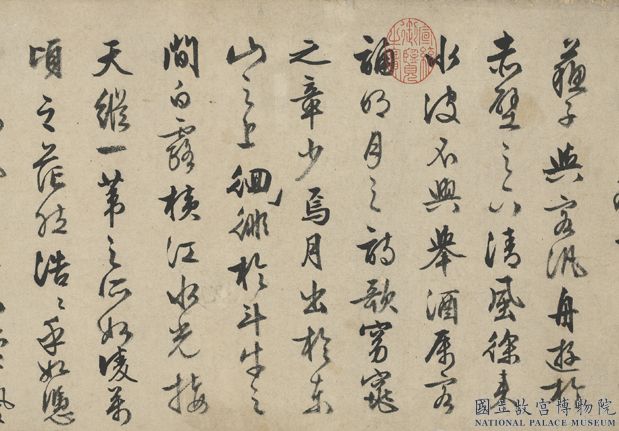 蘇子與客汎舟遊於
赤壁之下清風徐來
水波不興舉酒屬客
誦明月之詩歌窈窕
之章少焉月出於東
山之上徊徘於斗牛之
間白露橫江水光接
天縱一葦之所如凌萬
頃之茫然浩〻乎如憑
宣統御覽之寶
國立故宮博物院
NATIONAL PALACE MUSEUM